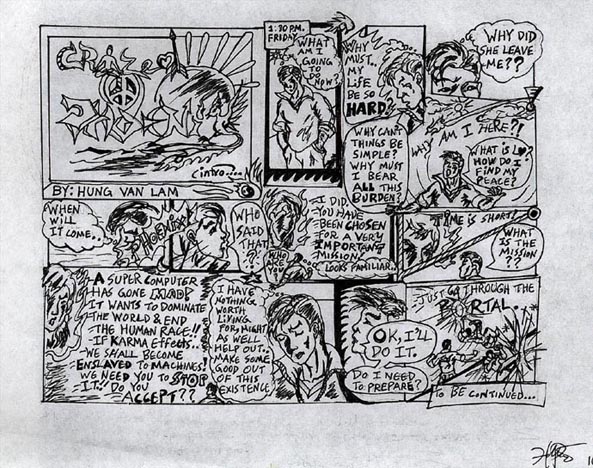 CRAZE
(intro....
BY: HUNG VAN LAM
1:30 P.M.
FRIDAY
WHAT
AM I
GOING
TO
DO
NOW?
WHY
MUST..
MY
LIFE
BE SO
HARD.
WHY DID
SHE LEAVE
ME??
WHY CAN'T
THINGS BE
SIMPLE?
WHY MUST
I BEAR
ALL THIS
BURDEN?
WHY
AM I HERE?!
WHAT IS
HOW DO I
FIND MY
PEACE?
WHEN
WILL
IT COME..
WHO
SAID
THAT
??
I DID.
YOU HAVE
BEEN CHOSEN
FOR A VERY
IMPORTANT
MISSION!
LOOKS FAMILIAR..
WHO
YOU
TIME IS SHORT!
WHAT
IS THE
MISSION
??
A SUPER COMPUTER
HAS GONE MAD!
IT WANTS TO DOMINATE
THE WORLD & END
THE HUMAN RACE!!
IF KARMA EFFECTS..
WE SHALL BECOME
ENSLAVED TO MACHINES!
WE NEED YOU TO STOP
IT!! DO YOU
ACCEPT??
I HAVE
NOTHING
WORTH
LIVING
FOR, MIGHT
AS WELL
HELP OUT..
MAKE SOME
GOOD OUT
OF THIS
EXISTENCE
OK, I'LL
DO IT.
DO I NEED
TO PREPARE?
JUST GO THROUGH THE
PORTAL...
TO BE CONTINUED...